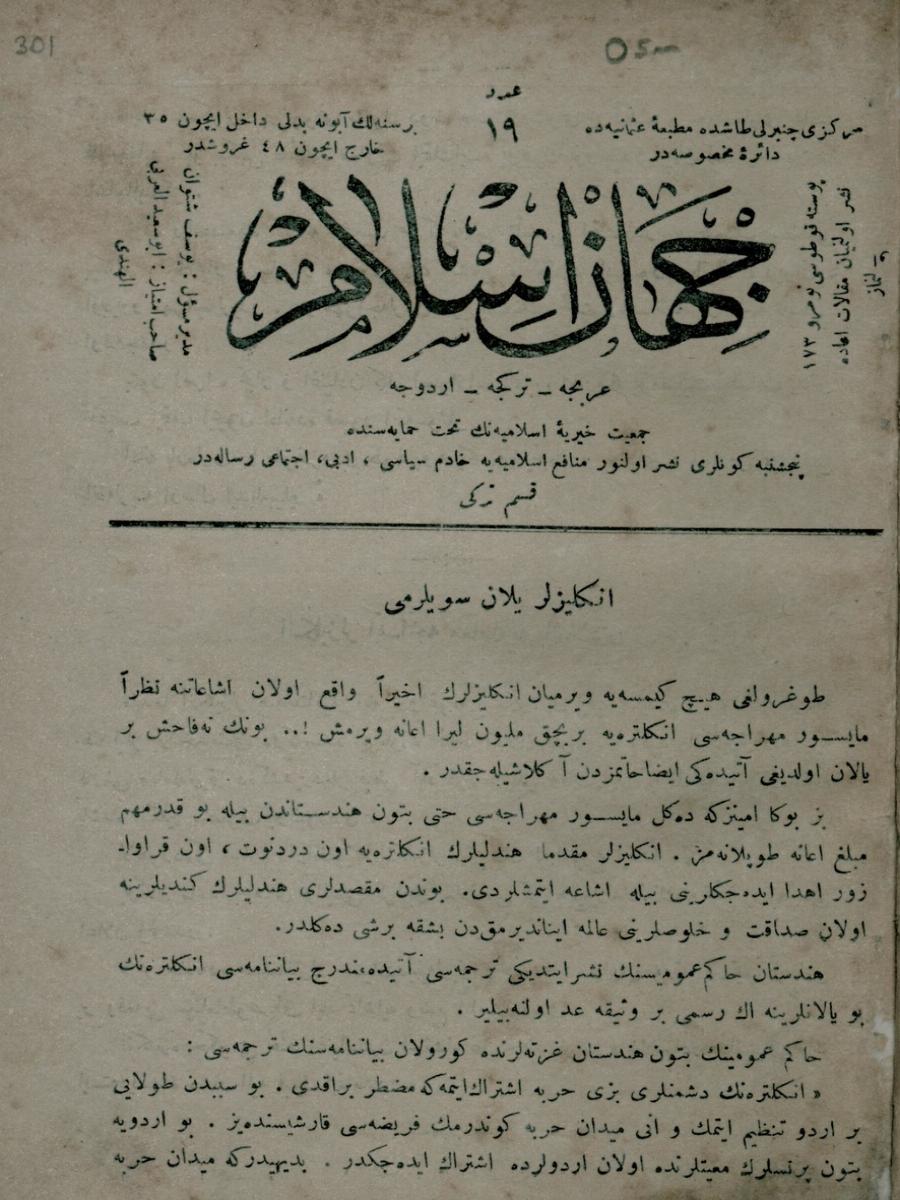 301
عدد
۱۹
مركزی چنبرلی طاشده مطبعۀ عثمانیه‌ده
دائرۀ مخصوصه‌در
برسنه‌لك آبونه بدلی داخل ایچون ۳۵
خارج ایچون ٤۸ غروشدر
پوسته قوطوسی نومرو ۱۷۳
نشر اولنمیان مقالات اعاده
جهان اسلام
مدیر مسؤل : یوسف شتوان
صاحب امتیاز : ابو سعید العربی
الهندی
عربجه ـ تركجه ـ اردوجه
جمعیت خیریۀ اسلامیه‌نك تحت حمایه‌سنده
پنجشنبه كونلری نشر اولنور منافع اسلامیه‌یه خادم سیاسی ، ادبی، اجتماعی رساله‌در
قسم تركی
انكلیزلر یلان سویلرمی
طوغرولغی هیچ كیمسه‌یه ویرمیان انكلیزلرك اخیراً واقع اولان اشاعاتنه نظراً
مایسور مهراجه‌سی انكلتره‌یه بربچق ملیون لیرا اعانه ویرمش !.. بونك نه‌فاحش بر
یالان اولدیغی آتیده‌كی ایضاحاتمزدن آ كلاشیله‌جقدر .
بز بوكا امینزكه ده‌كل مایسور مهراجه‌سی حتی بتون هندستاندن بیله بو قدرمهم
مبلغ اعانه طوپلانه‌مز . انكلیزلر مقدما هندلیلرك انكلتره‌یه اون دردنوت ، اون قراوا-
زور اهدا ایده‌جكلرینی بیله اشاعه ایتمشلردی. بوندن مقصدلری هندلیلرك كندیلرینه
اولان صداقت و خلوصلرینی عالمه ایناندیرمق‌دن بشقه برشی ده‌كلدر.
هندستان حاكم عمومیسنك نشرایتدیكی ترجمه‌سی آتیده‌مندرج بیاننامه‌سی انكلتره‌نك
بو یالانلرینه اك رسمی بر وثیقه عد اولنه‌بیلیر .
حاكم عمومینك بتون هندستان غزته‌لرنده كورولان بیاننامه‌سنك ترجمه‌سی :
« انكلتره‌نك دشمنلری بزی حربه اشتراك‌ایتمه‌كه مضطر براقدی . بو سببدن طولایی
بر اردو تنظیم ایتمك و انی میدان حربه كوندرمك فریضه‌سی قارشیسنده‌یز . بو اردویه
بتون پرنسلرك معیتلرنده اولان اردولرده اشتراك ایده‌جكدر . بدیهیدركه میدان حربه